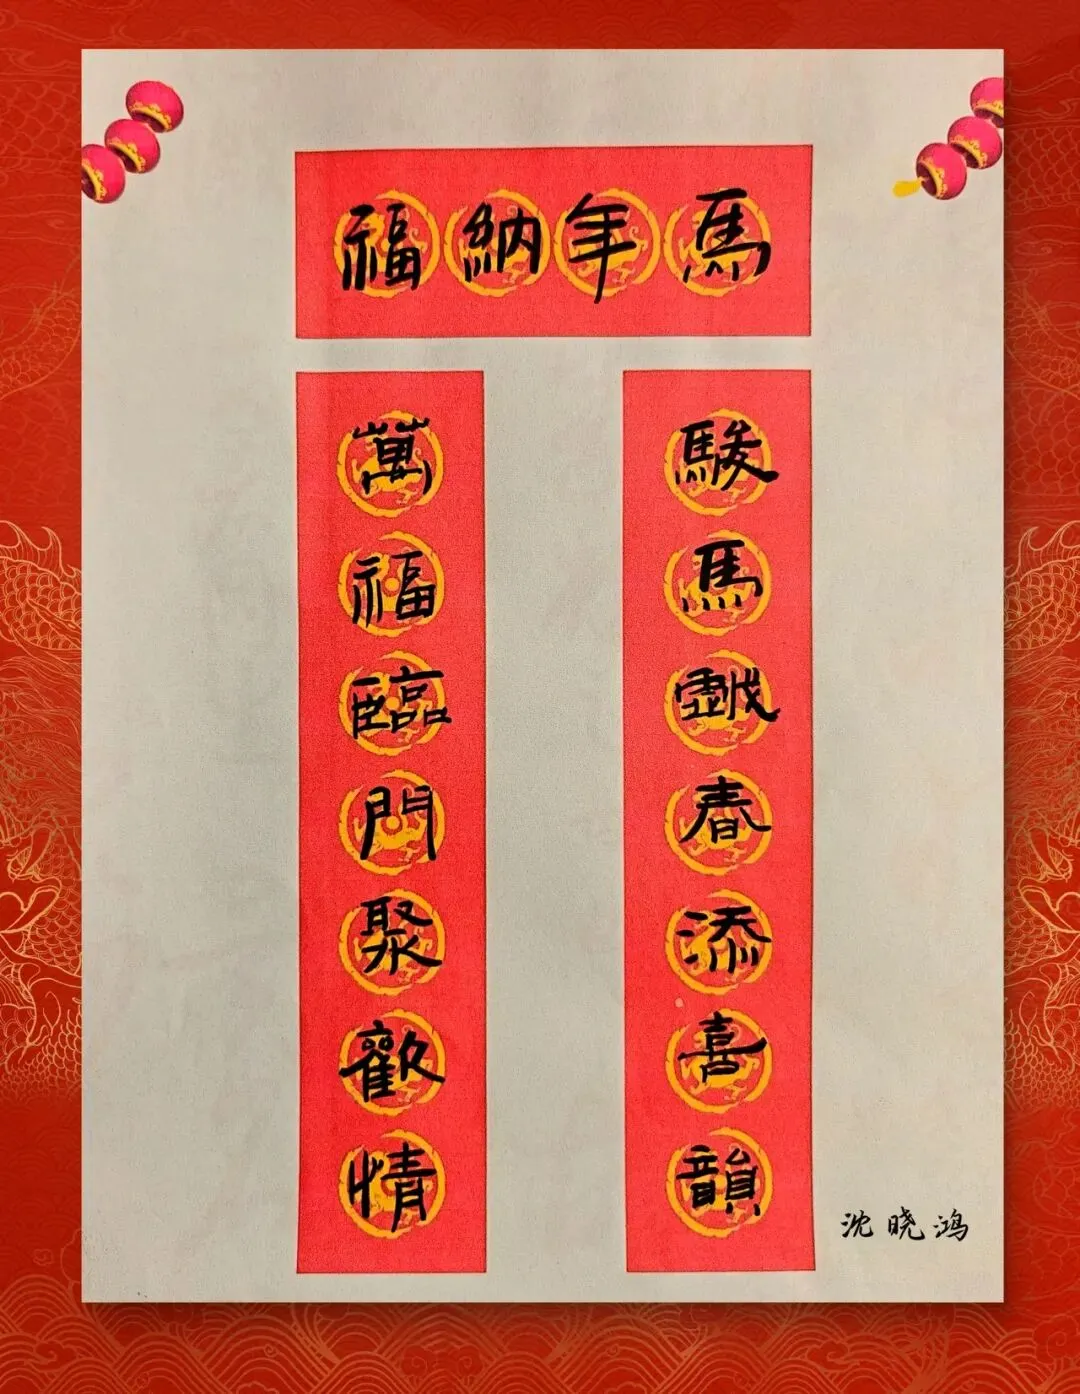 馬年納福
駿馬戲春添喜韻
萬福臨門聚歡情
沈晓鸿